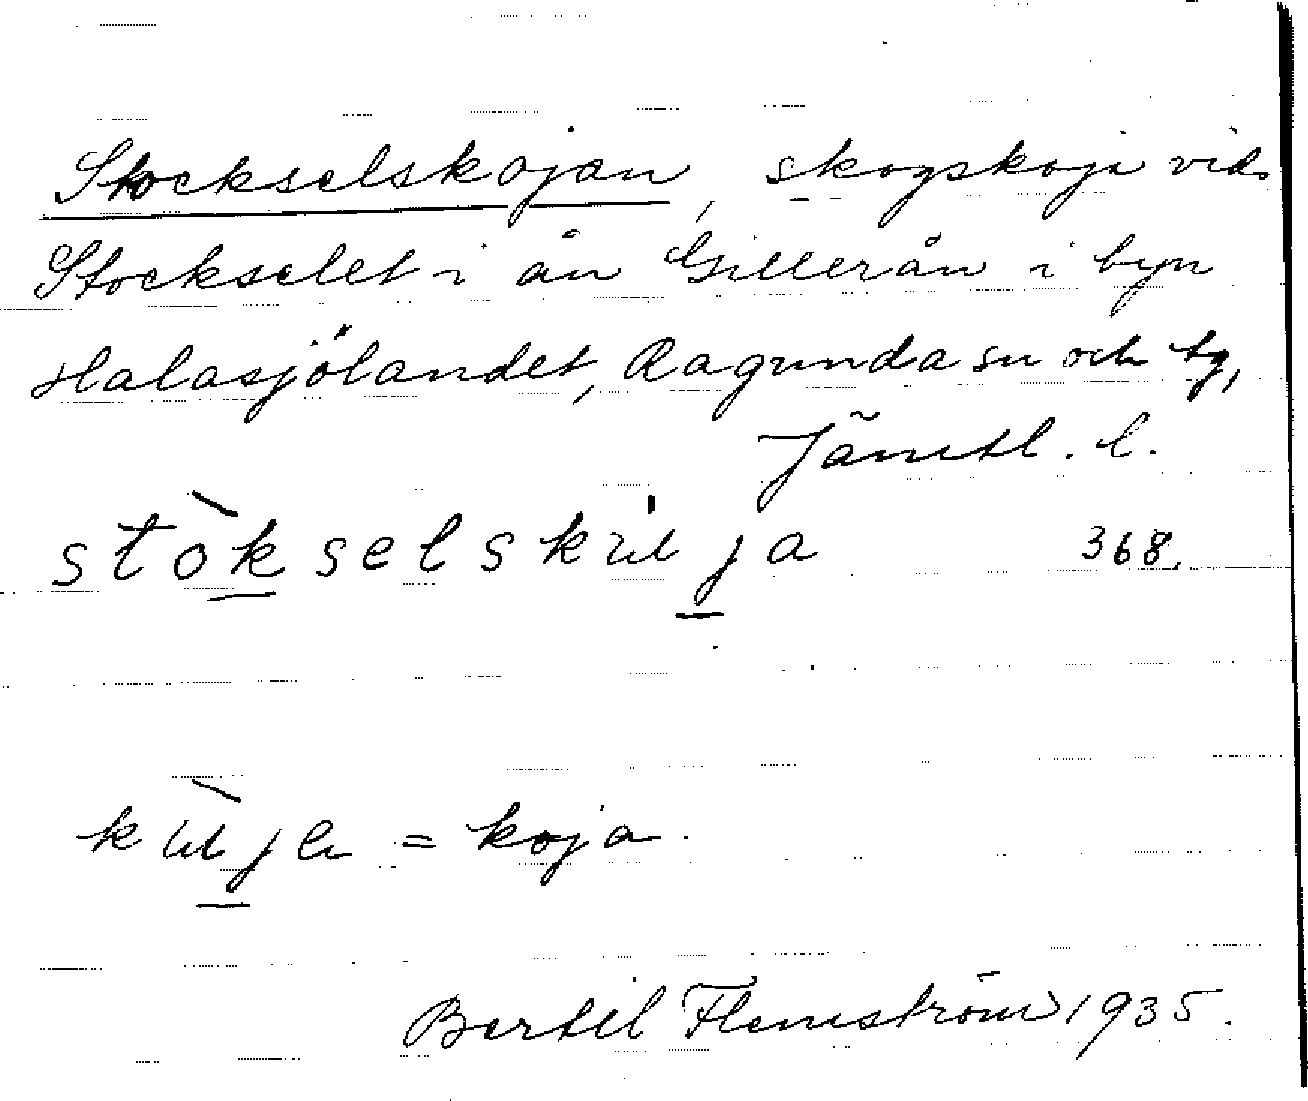 Stockselskojan, skogskoja vid
Stockselet i ån Gillerån i byn
Halasjölandet, Ragunda sn och tg,
Jämtl. l.
stòkselsku̍ja 368.
kùja = koja
Bertil Flemström 1935.